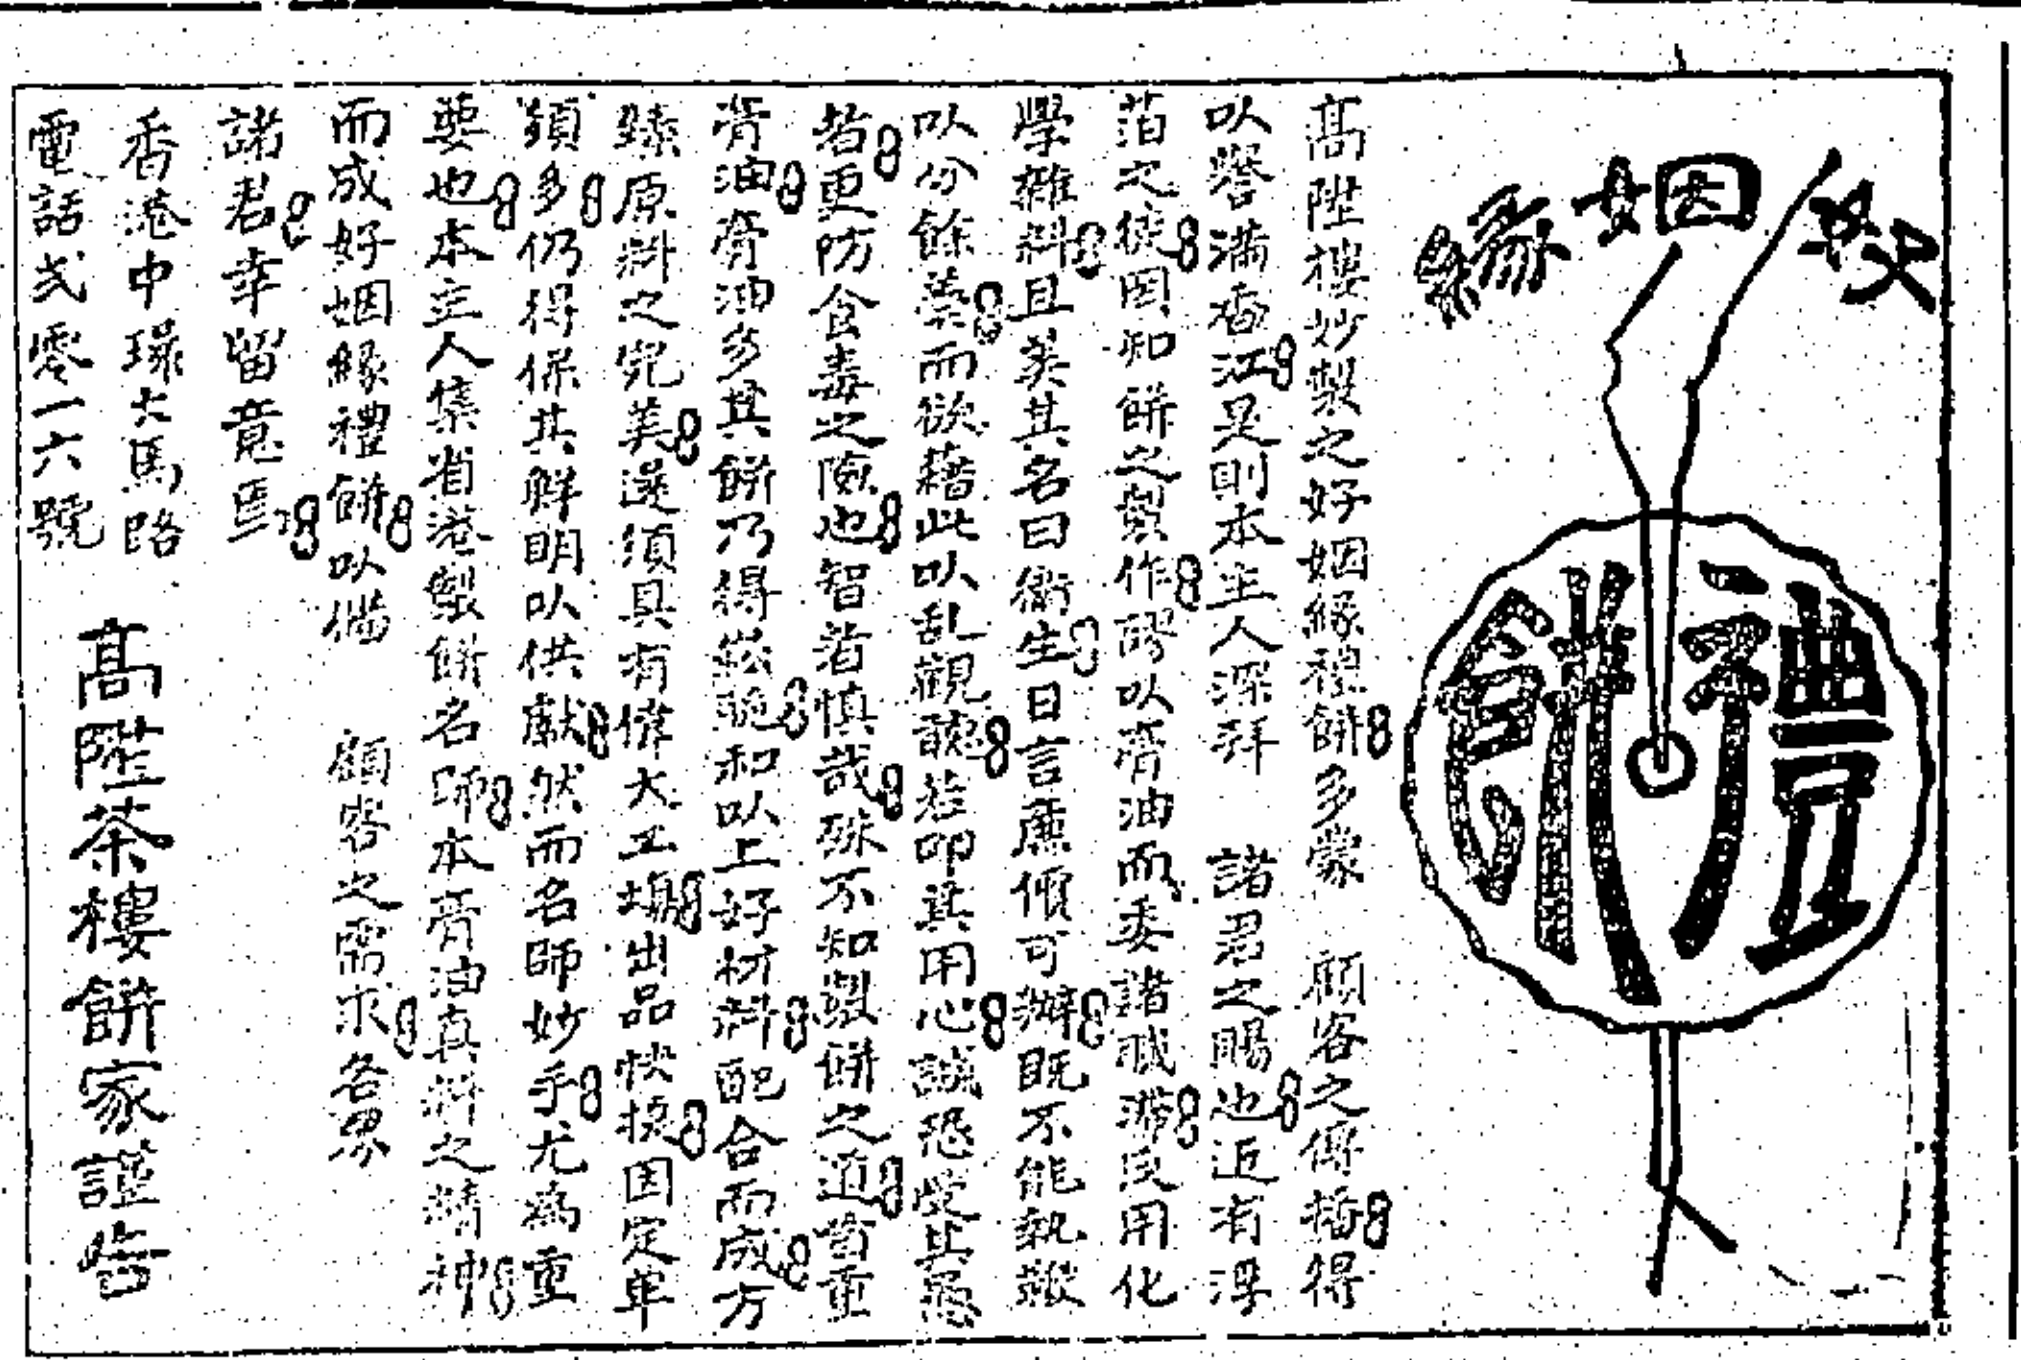 好姻緣
禮餅
高陞樓妙製之好姻緣禮餅多蒙 顧客之傳播得
以譽滿香江是則本主人深拜 諸君之賜也近有浮
滔之徒因知餅之製作醪以膏油而委諸職滞良用化
學雜料且美其名曰衛生日言廉價可辦既不能執
以分餘羹而欲藉此以乱觀聽若叩其用心誠恐受其愚
者更防食毒之險也智者慎哉殊不知製餅之道首重
膏油膏油多其餅乃得鬆脆和以上好材料配合而成方
臻原料之完美選須具有偉大工塲出品快捷因定單
多仍得保其鮮明以供獻然而名師妙手尤為重
要也本主人集省港製餅名師本膏油真料之精神
而成好姻緣禮餅以備 顧客之需求各界
諸君幸留意焉
香港中環大馬路
電話弍零一六號
高陞茶樓餅家謹告